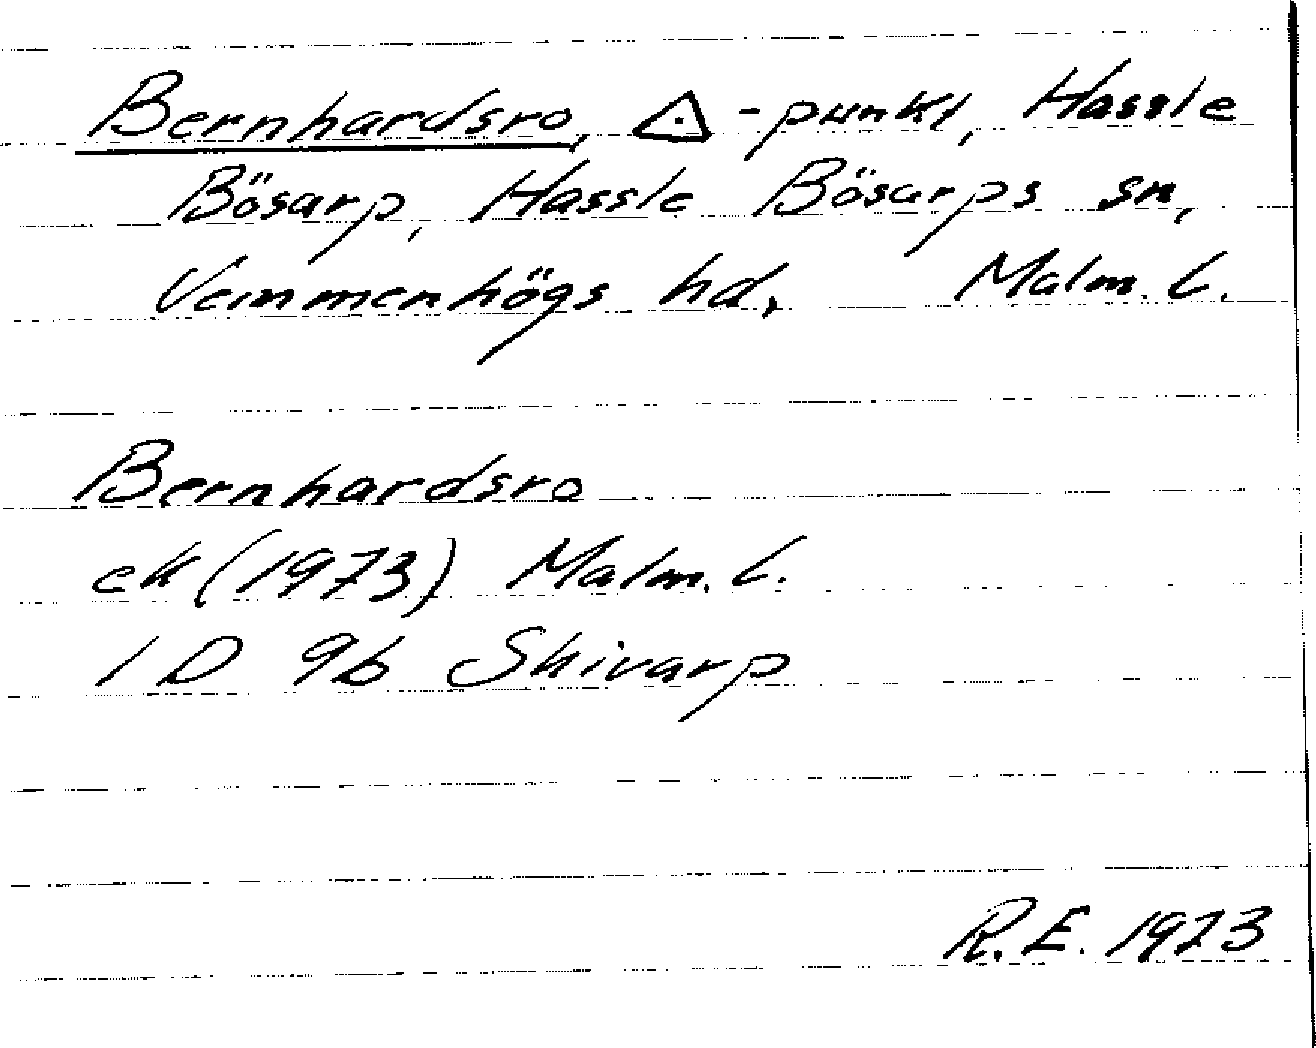 Bernhardsro, △ -punkt, Hassle
Bösarp, Hassle Bösarps sn,
Vemmenhögs hd, Malm. L.
Bernhardsro
ek (1973) Malm. L.
1 D 9b Skivarp
R.E. 1973